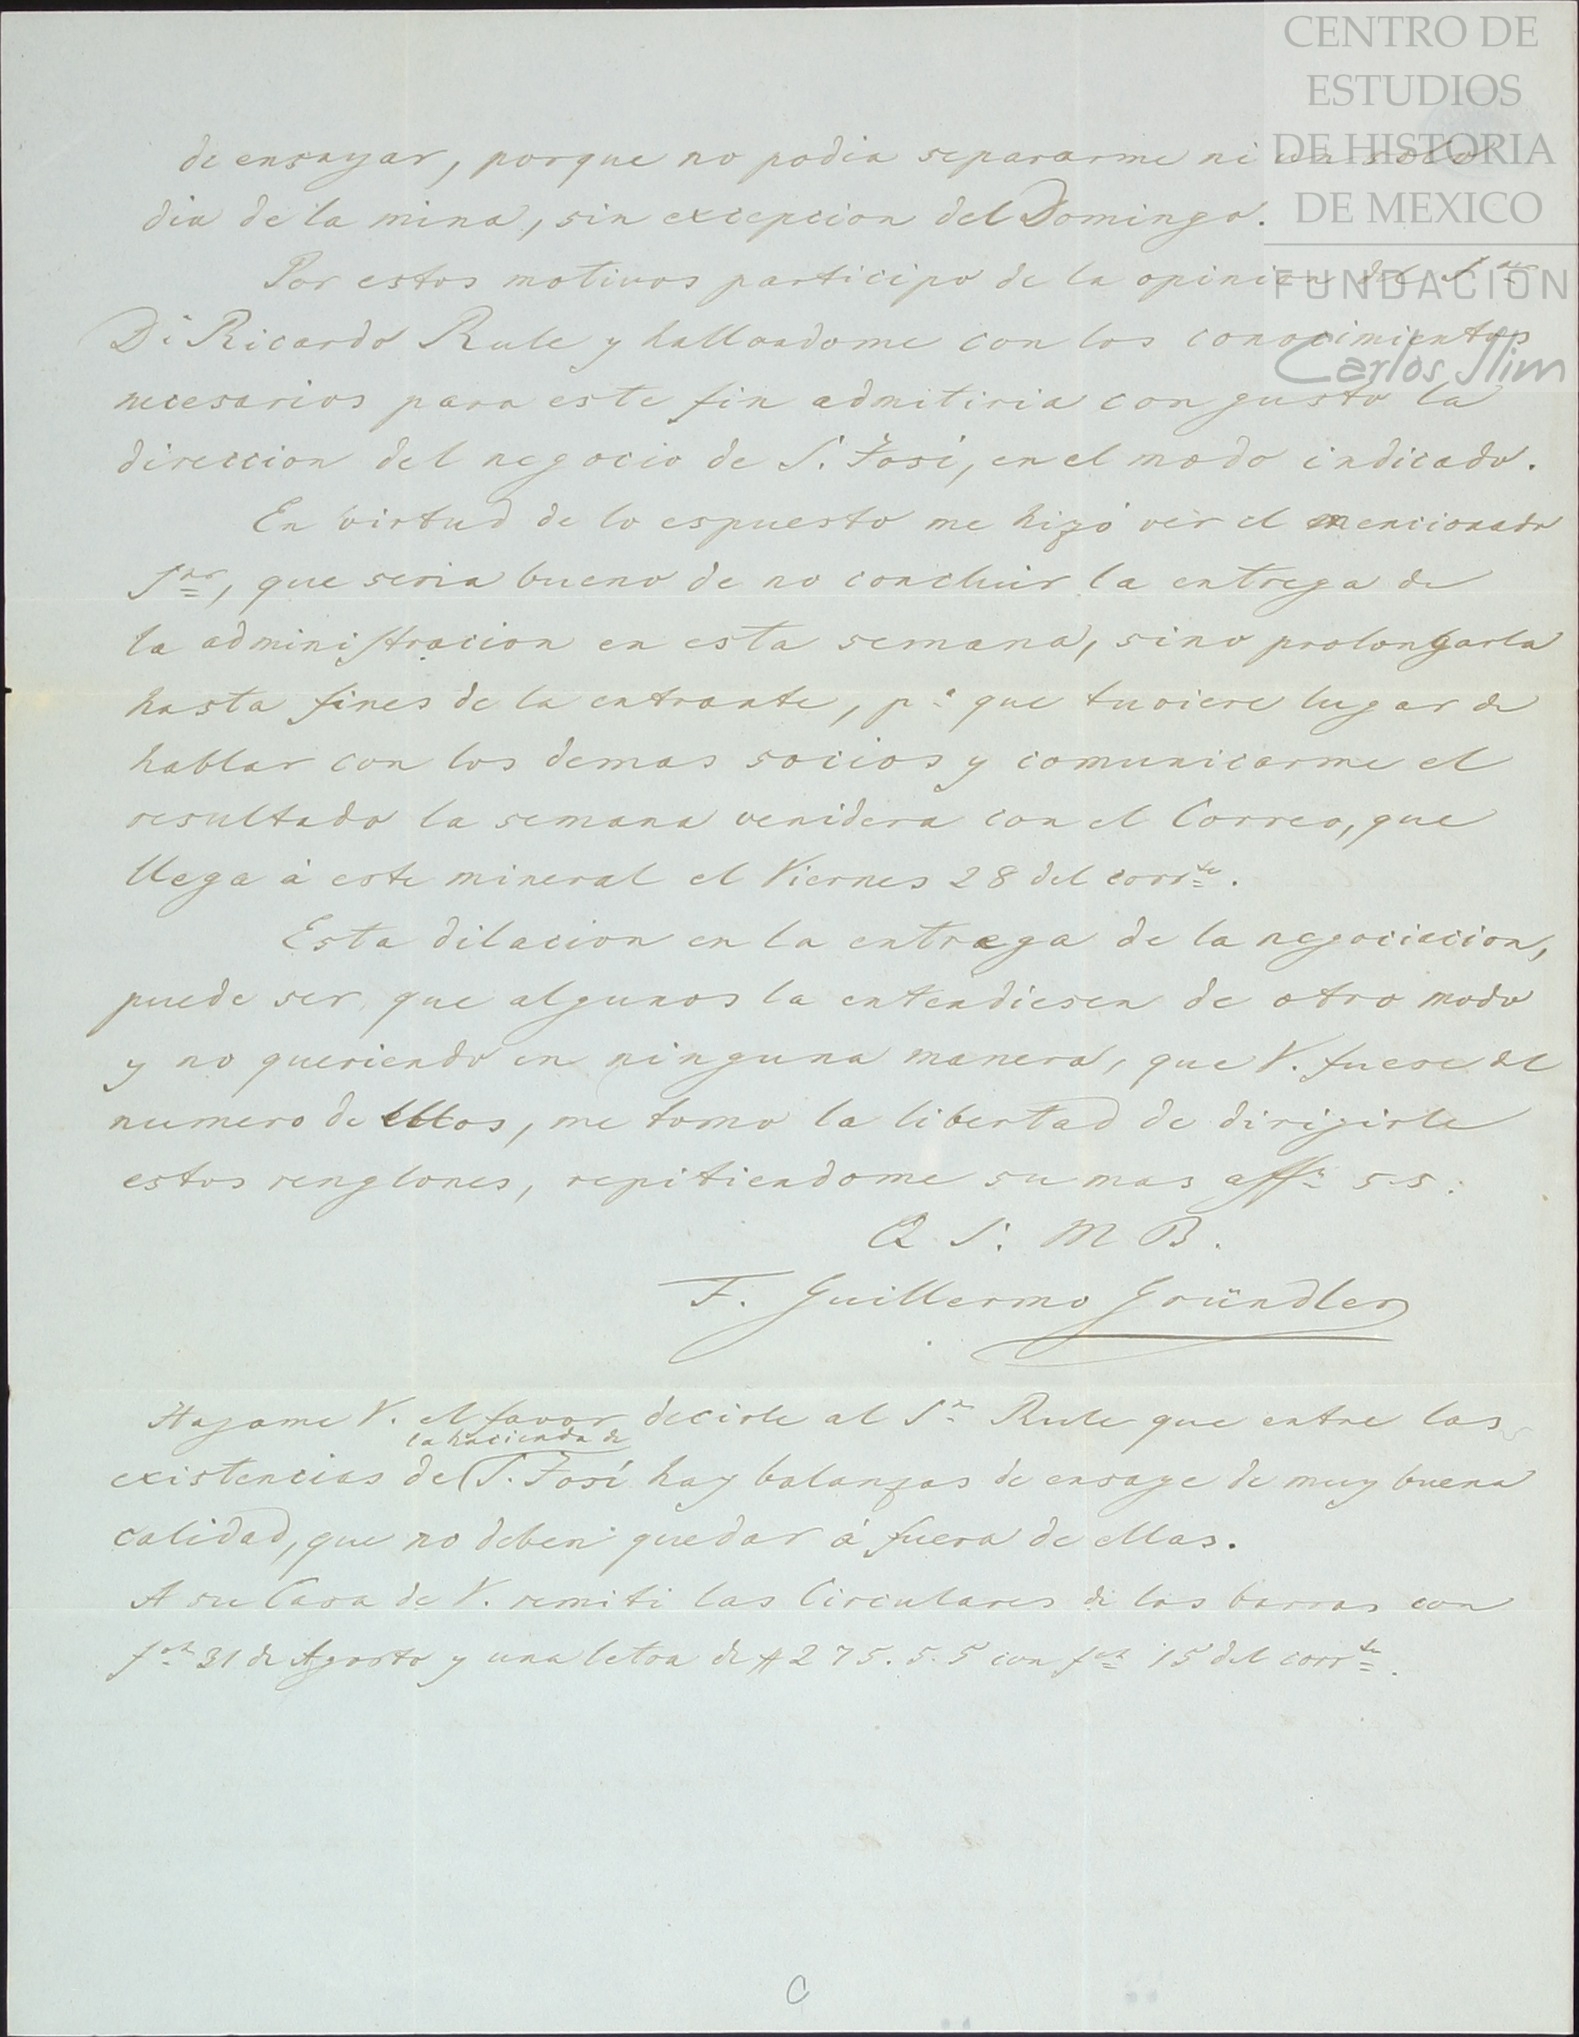 CENTRO DE
ESTUDIOS
DE HISTORIA
DE MEXICO
FUNDACIÓN
Carlos Slim
de ensayar, porque no podia separarme ni un solo
dia de la mina, sin excepcion del Domingo.
Por estos motivos participo de la opinion del Sor
Dn Ricardo Rule y hallandome con los conocimientos
necesarios para este fin admitiria con gusto la
direccion del negocio de S. José, en el modo indicado.
En virtud de lo espuesto me hizó ver el mencionado
Sor, que seria bueno de no concluir la entrega de
la administracion en esta semana, sino prolongarla
hasta fines de la entrante, pa que tuviere lugar de
hablar con los demas socios y comunicarme el
resultado la semana venidera con el Correo, que
llega á este mineral el Viernes 28 del corrte.
Esta dilacion en la entrega de la negociacion,
puede ser que algunos la entendiesen de otro modo
y no queriendo en ninguna manera, que V. fuese del
numero de ellos, me tomo la libertad de dirigirle
estos renglones, repitiendome su mas affo s.s.
Q S. M B.
F. Guillermo Gründler
Hagame V. el favor decirle al Sr Rule que entre las
la hacienda de
existencias de S. José hay balanzas de ensaye de muy buena
calidad, que no deben quedar á fuera de ellas.
A su Casa de V. remití las Circulares de las barras con
fcha 31 de Agosto y una letra de $275.5.5 con fcha 15 del corrte.
C